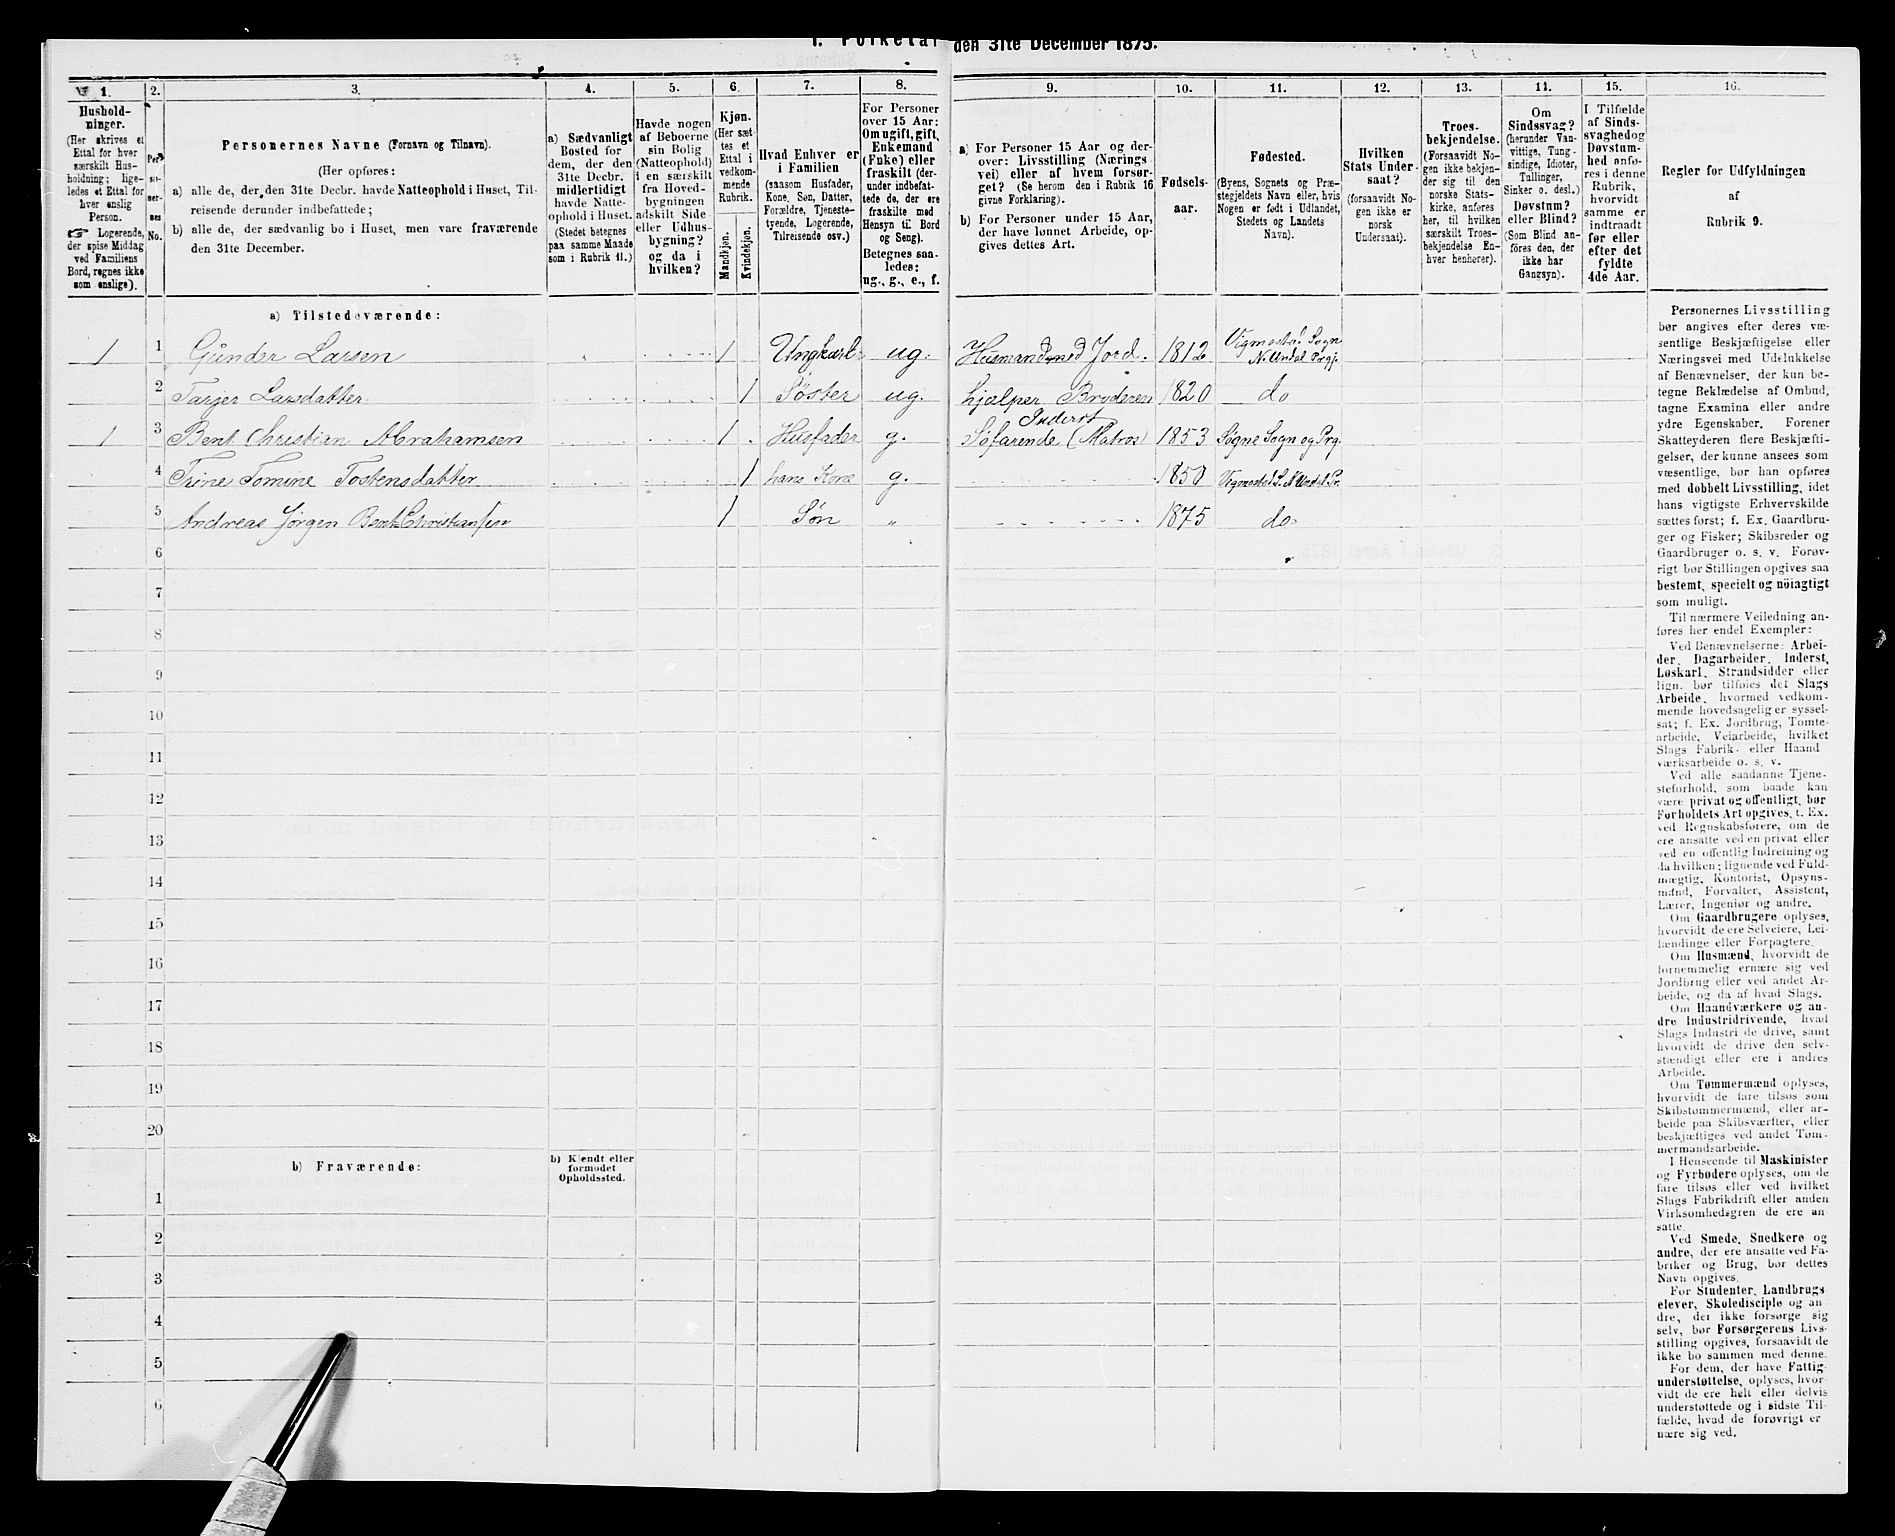 1. Folketal den 31te December 1875.
1. 2. 3. 4. 5. 6. 7. 8. 9. 10. 11. 12. 13. 14. 15. 16.
Hushold-
ninger.
(Her skrives et
Ettal for hver
særskilt Hus-
holdning; lige-
ledes et Ettal for
hver enslig
Person.
☞ Logerende,
der spise Middag
ved Familiens
Bord, regnes ikke
som enslige).
Per-
so-
ner-
nes
No.
Personernes Navne (Fornavn og Tilnavn).
(Her opføres:
a) alle de, der den 31te Decbr. havde Natteophold i Huset, Til-
reisende derunder indbefattede;
b) alle de, der sædvanlig bo i Huset, men vare fraværende
den 31te December.
a) Sædvanligt
Bosted for
dem, der den
31te Decbr.
midlertidigt
havde Natte-
ophold i Huset.
(Stedet betegnes
paa samme Maade
som i Rubrik 11.)
Havde nogen
af Beboerne
sin Bolig
(Natteophold)
i en særskilt
fra Hoved-
bygningen
adskilt Side-
eller Udhus-
bygning?
og da i
hvilken?
Kjøn.
(Her sæt-
tes et
Ettal i
vedkom-
mende
Rubrik.
Mandkjøn.
Kvindekjøn.
Hvad Enhver er
i Familien
(saasom Husfader,
Kone, Søn, Datter,
Forældre, Tjeneste-
tyende, Logerende,
Tilreisende osv.)
For Personer
over 15 Aar:
Om ugift, gift,
Enkemand
(Enke) eller
fraskilt (der-
under indbefat-
tede de, der ere
fraskilte med
Hensyn til Bord
og Seng).
Betegnes saa-
ledes:
ug., g., e., f.
a) For Personer 15 Aar og der-
over: Livsstilling (Nærings-
vei) eller af hvem forsør-
get? (Se herom den i Rubrik 16
givne Forklaring).
b) For Personer under 15 Aar,
der have lønnet Arbeide, op-
gives dettes Art.
Fødsels-
aar.
Fødested.
(Byens, Sognets og Præ-
stegjeldets Navn eller, hvis
Nogen er født i Udlandet,
Stedets og Landets
Navn).
Hvilken
Stats Under-
saat?
(forsaavidt No-
gen ikke er
norsk
Undersaat).
Troes-
bekjendelse.
(Forsaavidt No-
gen ikke bekjen-
der sig til den
norske Stats-
kirke, anføres
her, til hvilken
særskilt Troes-
bekjendelse En-
hver henhører).
Om
Sindssvag?
(herunder Van-
vittige, Tung-
sindige, Idioter,
Tullinger,
Sinker o. desl.)
Døvstum?
eller Blind?
(Som Blind an-
føres den, der
ikke har
Gangsyn).
I Tilfælde
af Sinds-
svaghed og
Døvstum-
hed anfø-
res i denne
Rubrik,
hvorvidt
samme er
indtraadt
før eller
efter det
fyldte
4de Aar.
Regler for Udfyldningen
af
Rubrik 9.
a) Tilstedeværende:
1 1 Gunder Larsen 1 Ungkarl ug. Husmand med Jord. 1812 Vigmostad Sogn N. Undal Prgj.
2 Tarjer Larsdatter 1 Søster ug. hjælper Broderen 1820 do
Inderst
1 3 Bent Christian Abrahamsen 1 Husfader g. Søfarende (Matros) 1853 Søgne Sogn og Prg.
4 Trine Tomine Tostensdatter 1 hans Kone g. 1850 Vigmostad S. N. Undal Pr.
5 Andreas Jørgen Bent Christiansen 1 Søn " 1875 do
6
7
8
9
10
11
12
13
14
15
16
17
18
19
20
b) Fraværende:
b) Kjendt eller
formodet
Opholdssted.
1
2
3
4
5
6
Personernes Livsstilling
bør angives efter deres væ-
sentlige Beskjæftigelse eller
Næringsvei med Udelukkelse
af Benævnelser, der kun be-
tegne Beklædelse af Ombud,
tagne Examina eller andre
ydre Egenskaber. Forener
Skatteyderen flere Beskjæfti-
gelser, der kunne ansees som
væsentlige, bør han opføres
med dobbelt Livsstilling, idet
hans vigtigste Erhvervskilde
sættes først; f. Ex. Gaardbru-
ger og Fisker; Skibsreder og
Gaardbruger o. s. v. Forøv-
rigt bør Stillingen opgives saa
bestemt, specielt og nøiagtigt
som muligt.
Til nærmere Veiledning an-
føres her endel Exempler:
Ved Benævnelserne: Arbei-
der, Dagarbeider, Inderst,
Løskarl, Strandsidder eller
lign. bør tilføies det Slags
Arbeide, hvormed vedkom-
mende hovedsagelig er syssel-
sat; f. Ex. Jordbrug, Tomte-
arbeide, Veiarbeide, hvilket
Slags Fabrik- eller Haand-
værksarbeide o. s. v.
Ved alle saadanne Tjene-
steforhold, som baade kan
være privat og offentligt, bør
Forholdets Art opgives, t. Ex.
ved Regnskabsførere, om de
ere ansatte ved en privat eller
ved en offentlig Indretning og
da hvilken; lignende ved Fuld-
mægtig, Kontorist, Opsyns-
mand, Forvalter, Assistent,
Lærer, Ingeniør og andre.
Om Gaardbrugere oplyses,
hvorvidt de ere Selveiere, Lei-
lændinge eller Forpagtere.
Om Husmænd, hvorvidt de
fornemmelig ernære sig ved
Jordbrug eller ved andet Ar-
beide, og da af hvad Slags.
Om Haandværkere og an-
dre Industridrivende, hvad
Slags Industri de drive, samt
hvorvidt de drive den selv-
stændigt eller ere i andres
Arbeide.
Om Tømmermænd oplyses,
hvorvidt de fare tilsøs som
Skibstømmermænd, eller ar-
beide paa Skibsværfter, eller
beskjæftiges ved andet Tøm-
mermandsarbeide.
I Henseende til Maskinister
og Fyrbødere oplyses, om de
fare tilsøs eller ved hvilket
Slags Fabrikdrift eller anden
Virksomhedsgren de ere an-
satte.
Ved Smede, Snedkere og
andre, der ere ansatte ved Fa-
briker og Brug, bør dettes
Navn opgives.
For Studenter, Landbrugs-
elever, Skoledisciple og an-
dre, der ikke forsørge sig
selv, bør Forsørgerens Livs-
stilling opgives, forsaavidt de
ikke bo sammen med denne.
For dem, der have Fattig-
understøttelse, oplyses, hvor-
vidt de ere helt eller delvis
understøttede og i sidste Til-
fælde, hvad de forøvrigt er-
nære sig ved.